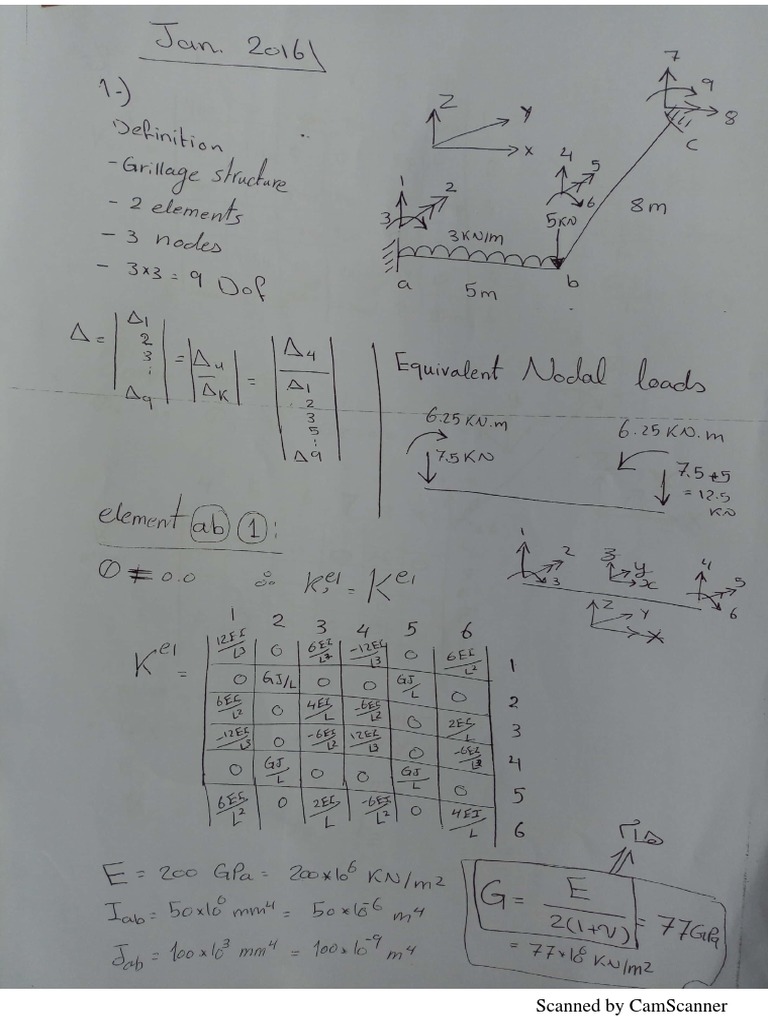 Jan. 2016
1-)
Definition
- Grillage structure
- 2 elements
- 3 nodes
- 3×3 = 9 Dof
Z
Y
X
1
2
3
3 KN/m
a
5m
4
5
6
5KN
b
8m
7
9
8
c
Δ = | Δ1 2 3 ⋮ Δ9 | = | Δu / ΔK | = | Δ4 / Δ1 2 3 5 ⋮ Δ9 |
Equivalent Nodal loads
6.25 KN.m
7.5 KN
6.25 KN.m
7.5+5
= 12.5
KN
element ab 1 :
= 0.0 ∴ K,el = Kel
1 2 3 z y x 4 5 6
Z Y X
1 2 3 4 5 6
Kel =
12EI/L3 0 6EI/L2 -12EI/L3 0 6EI/L2 1
0 GJ/L 0 0 GJ/L 0 2
6EI/L2 0 4EI/L -6EI/L2 0 2EI/L 3
-12EI/L3 0 -6EI/L2 12EI/L3 0 -6EI/L2 4
0 GJ/L 0 0 GJ/L 0 5
6EI/L2 0 2EI/L -6EI/L2 0 4EI/L 6
E = 200 GPa = 200×10^6 KN/m2
Iab = 50×10^6 mm4 = 50×10^-6 m4
Jab = 100×10^3 mm4 = 100×10^-9 m4
G = E / 2(1+ν) = 77GPa
= 77×10^6 KN/m2
Scanned by CamScanner